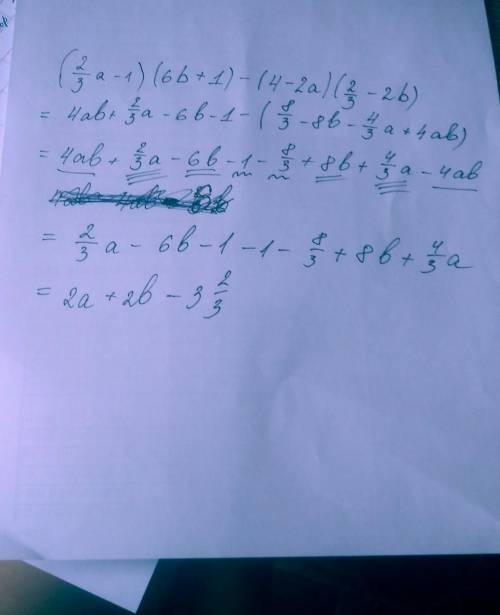 (2/3 a - 1)(6b + 1) - (4 - 2a)(2/3 - 2b)
= 4ab + 2/3 a - 6b - 1 - (8/3 - 8b - 4/3 a + 4ab)
= 4ab + 2/3 a - 6b - 1 - 8/3 + 8b + 4/3 a - 4ab
= 2/3 a - 6b - 1 - 1 - 8/3 + 8b + 4/3 a
= 2a + 2b - 3 2/3